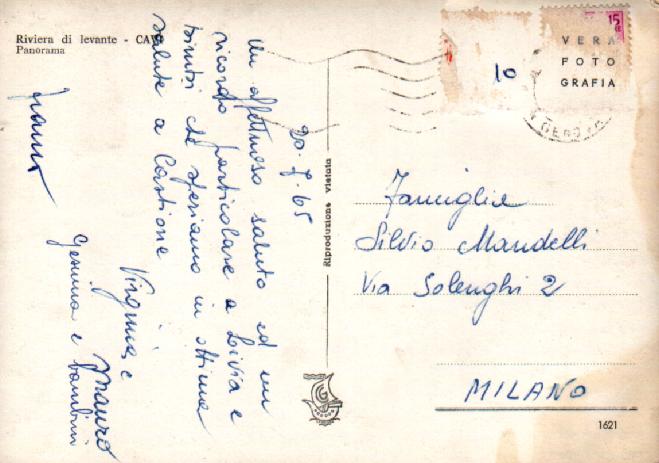 Riviera di levante - CAVI
Panorama
20.7.65
Un affettuoso saluto ed un
ricordo particolare a Livia e
che speriamo in ottima
salute a Castione
Virginia e Mauro
Gesuina e bambini
Riproduzione vietata
15
VERA
FOTO
GRAFIA
10
Famiglie
Silvio Mandelli
Via Solenghi 2
MILANO
1621